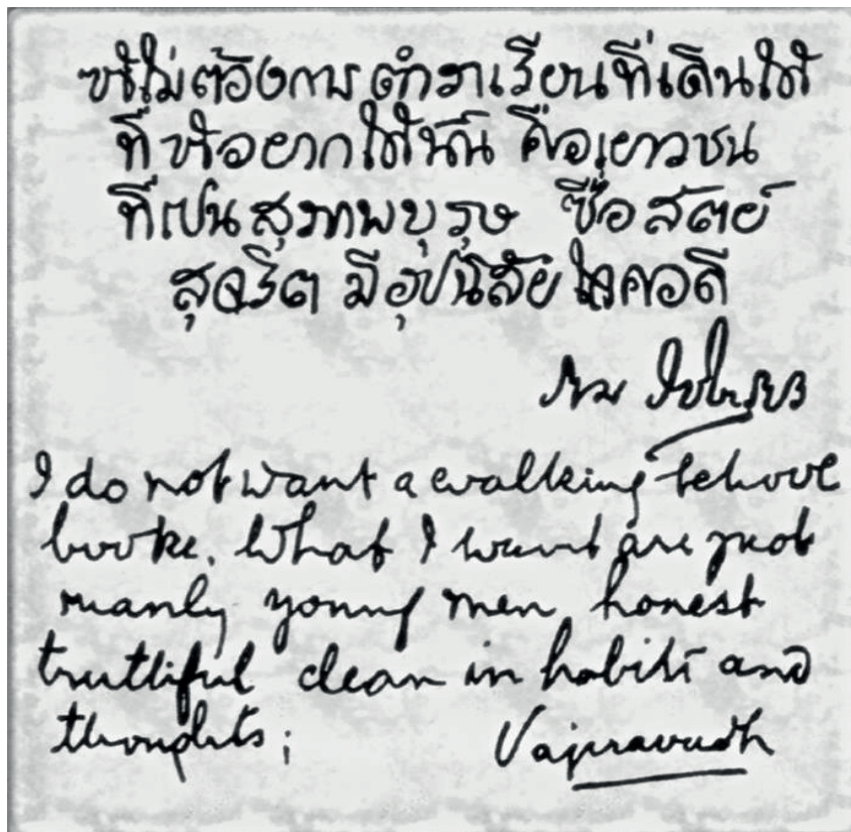 ข้าไม่ต้องการตำราเรียนที่เดินได้
ที่ข้าอยากได้นั้น คือเยาวชน
ที่เปนสุภาพบุรุษ ซื่อสัตย์
สุจริต มีอุปนิสัยใจคอดี
I do not want a walking school
book. What I want are just
manly young men honest
truthful clean in habits and
thoughts;
Vajiravudh